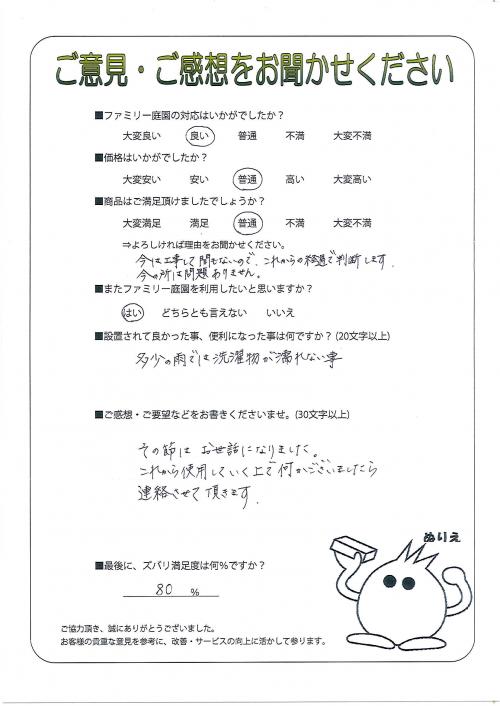 ご意見・ご感想をお聞かせください
■ファミリー庭園の対応はいかがでしたか？
大変良い 良い 普通 不満 大変不満
■価格はいかがでしたか？
大変安い 安い 普通 高い 大変高い
■商品はご満足頂けましたでしょうか？
大変満足 満足 普通 不満 大変不満
⇒よろしければ理由をお聞かせください。
今は工事して間もないので、これからの経過で判断します.
今の所は問題ありません。
■またファミリー庭園を利用したいと思いますか？
はい どちらとも言えない いいえ
■設置されて良かった事、便利になった事は何ですか？(20文字以上)
多少の雨では洗濯物が濡れない事
■ご感想・ご要望などをお書きくださいませ。(30文字以上)
その節は お世話になりました。
これから使用していく上で何かございましたら
連絡させて頂きます.
ぬりえ
■最後に、ズバリ満足度は何％ですか？
80 ％
ご協力頂き、誠にありがとうございました。
お客様の貴重な意見を参考に、改善・サービスの向上に活かして参ります。